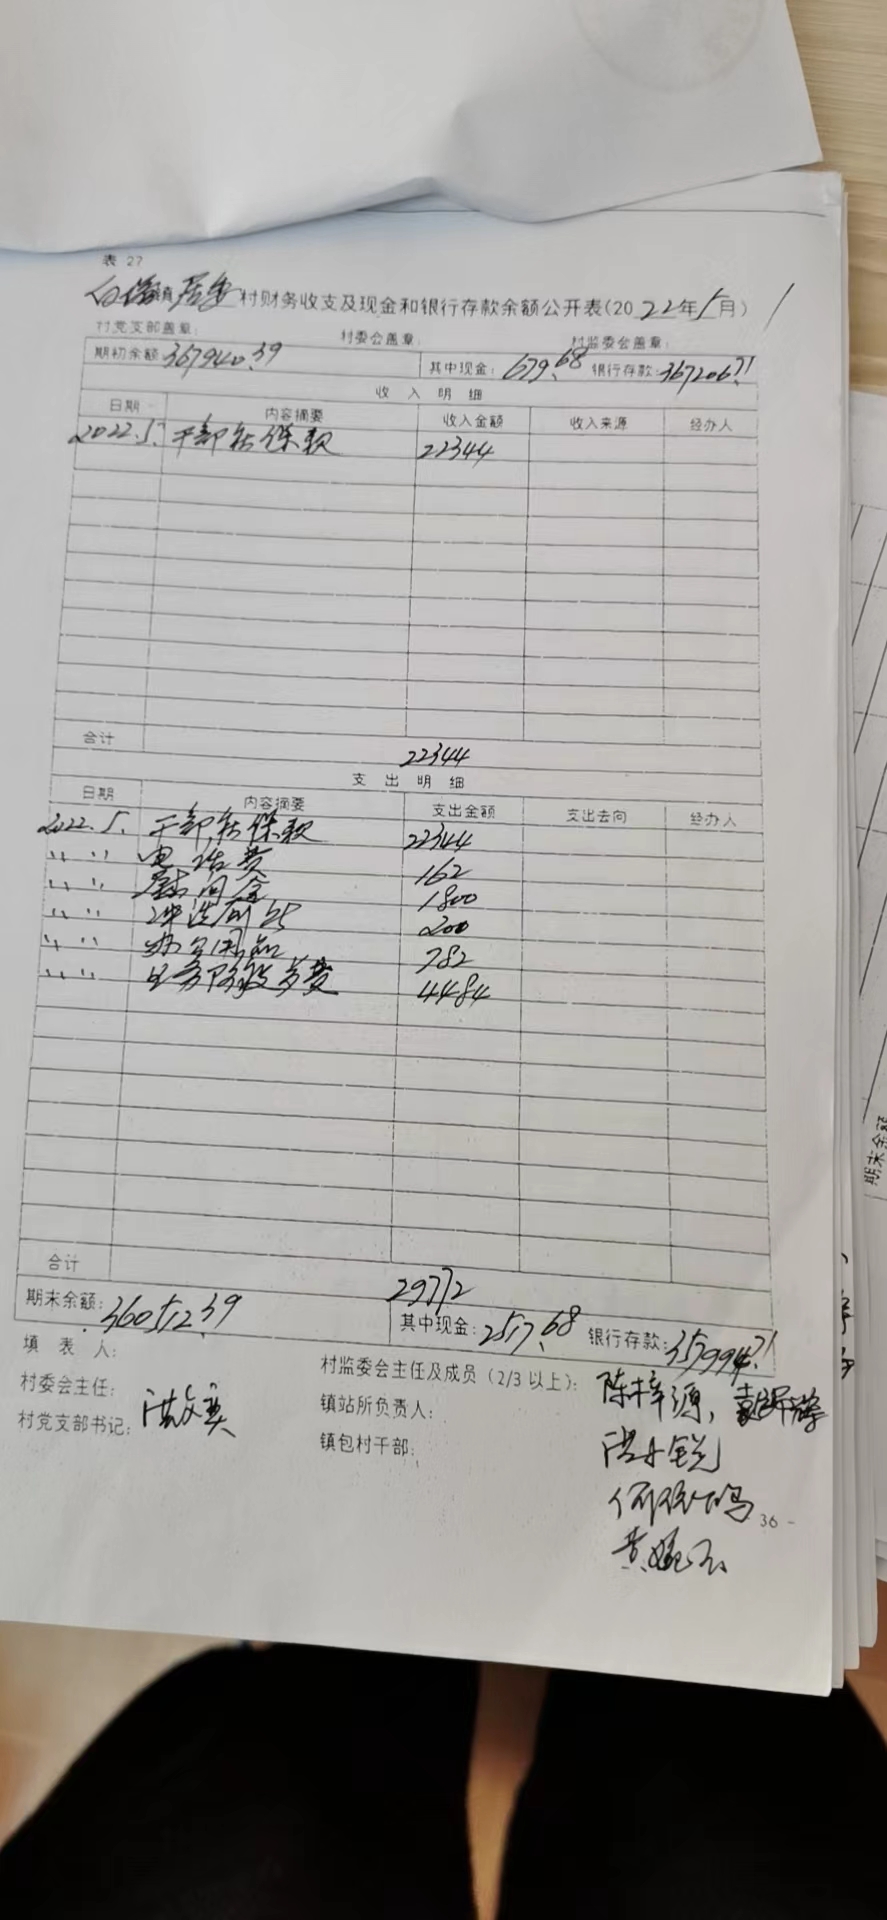 表 27
白塔镇居委村财务收支及现金和银行存款余额公开表(2022年5月)
村党支部盖章: 村委会盖章: 村监委会盖章:
期初余额:367940.39 其中现金:679.68 银行存款:367206.71
收 入 明 细
日期 内容摘要 收入金额 收入来源 经办人
2022.5. 干部款 22344
合计 22344
支 出 明 细
日期 内容摘要 支出金额 支出去向 经办人
2022.5. 干部款 22344
〃 〃 电话费 162
〃 〃 慰问金 1800
〃 〃 200
〃 〃 办公用品 782
〃 〃 费 4484
合计 29772
期末余额:360512.39 其中现金:2517.68 银行存款:357994.71
填 表 人: 村监委会主任及成员(2/3以上): 陈梓源,
村委会主任: 镇站所负责人:
村党支部书记: 镇包村干部:
36 -
期末余额